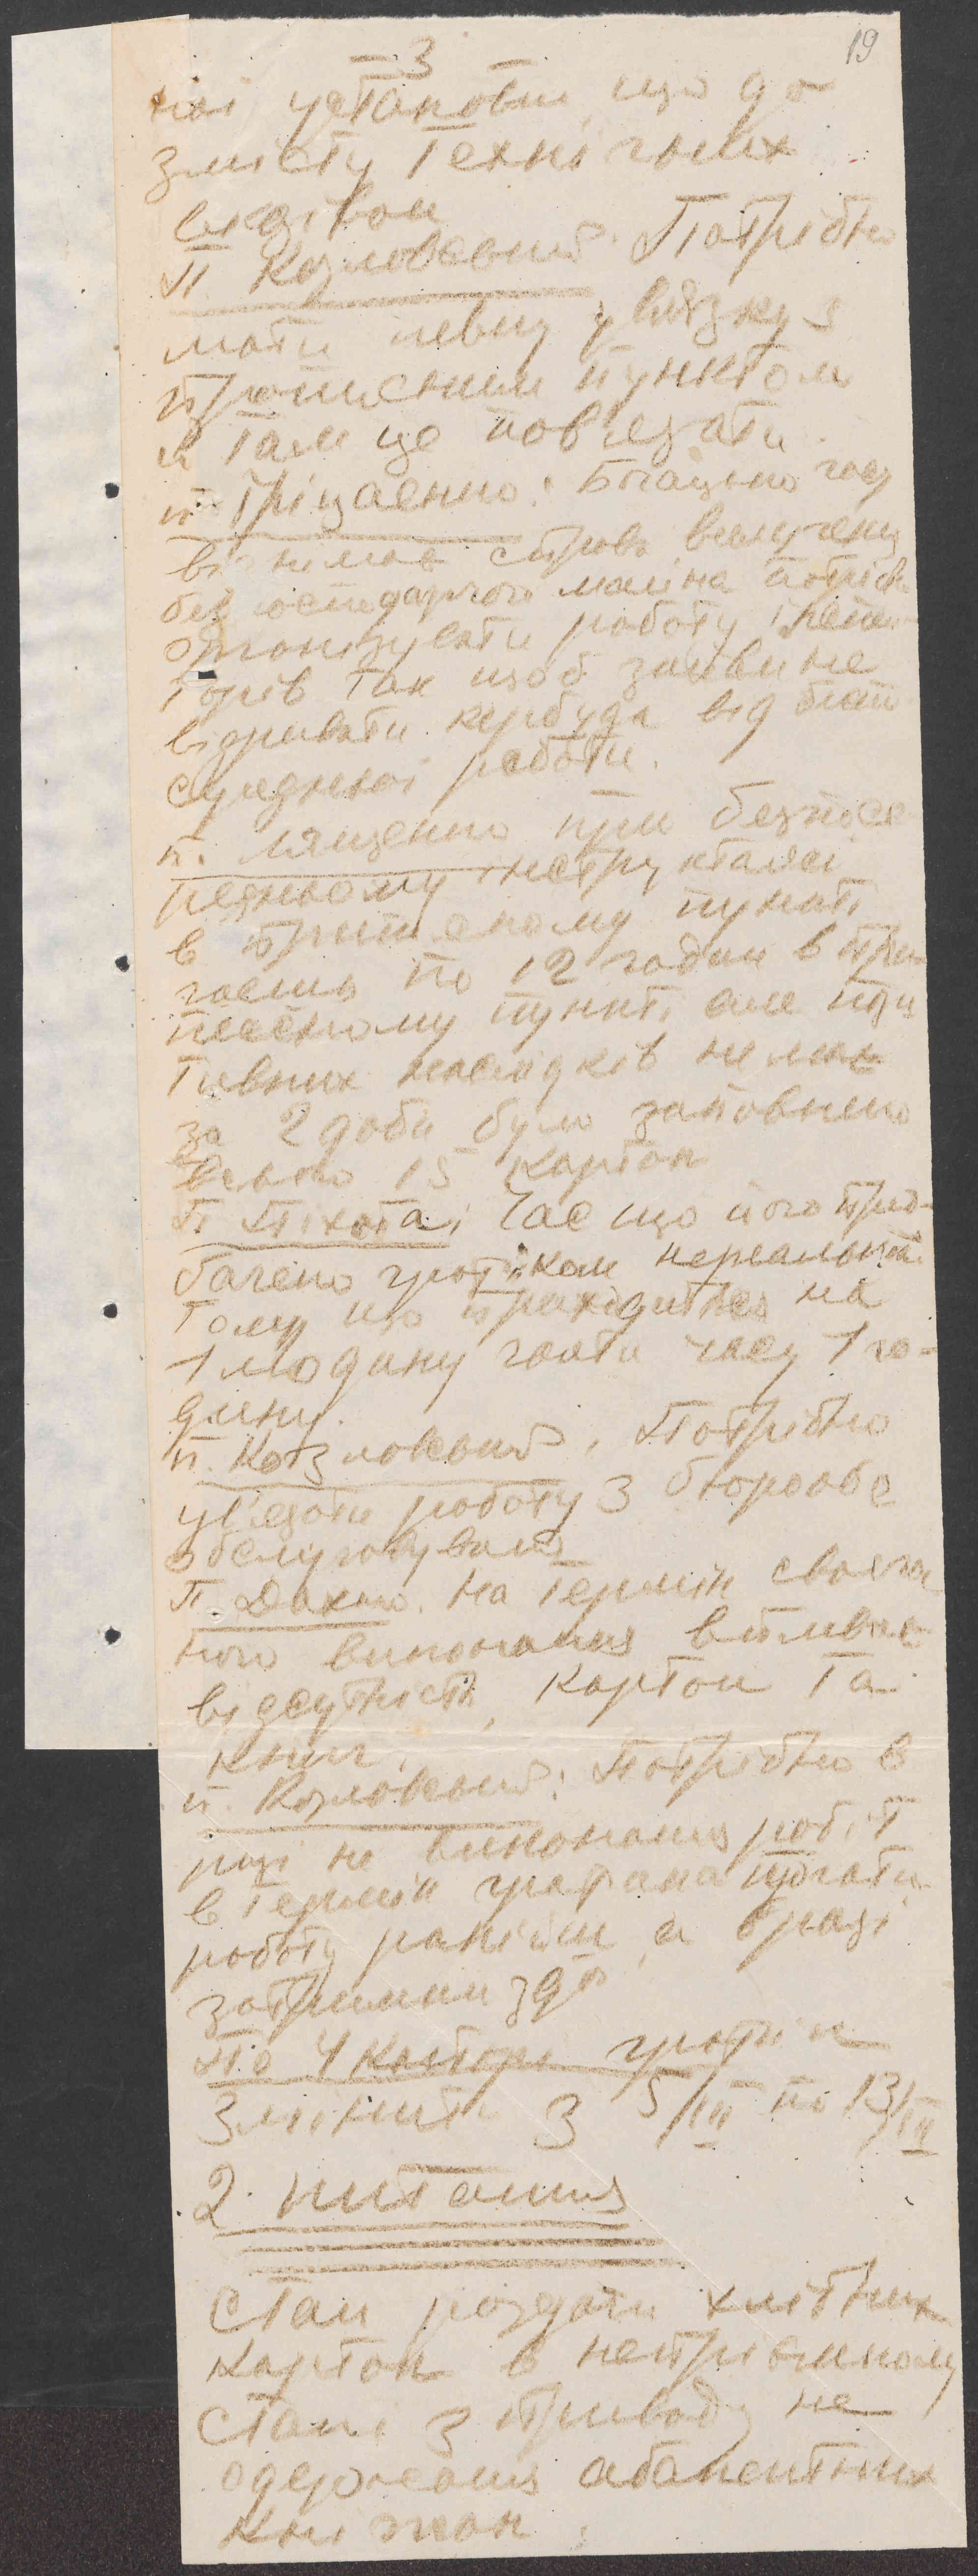 19
3
ної установки що до
змісту технічних
вказівок
п Козловський. Потрібно
мати певну увязку з
прописним пунктом
и там це повязати
п. Гріщаенко: Багацько часу
віднимає справа
без господарчого маліна потрібно
організувати роботу
торів так щоб зайви не
відривати кербуда від
суредньої работи.
п. Лященко при безпосе
редньому інструктажі
в прописному пункті
часила по 12 годин в при
писному пункті але пози
тивних наслідків не має
за 2 доби було заповнено
всього 15 карток
п Піхота: Час що його перед-
бачено графіком нереальний
тому що приходиться на
1 людину часу 1 го-
дину.
п. Козловський. Потрібно
увязати роботу з бюро або
обслуговування
п. Дахно. На термін своєчас
ного виконання впливає
відсутність карток та
книг.
п. Козловський: Потрібно в
разі не виконання робіт
в термін графика почати
роботу раніш, а в разі
затримки
По 4 конторі графік
Змінити з 5/III по 13/III
2 питання
Стан роздачи хлібних
карток в неприємному
стані з приводу не
одержання абанентних
книжок.